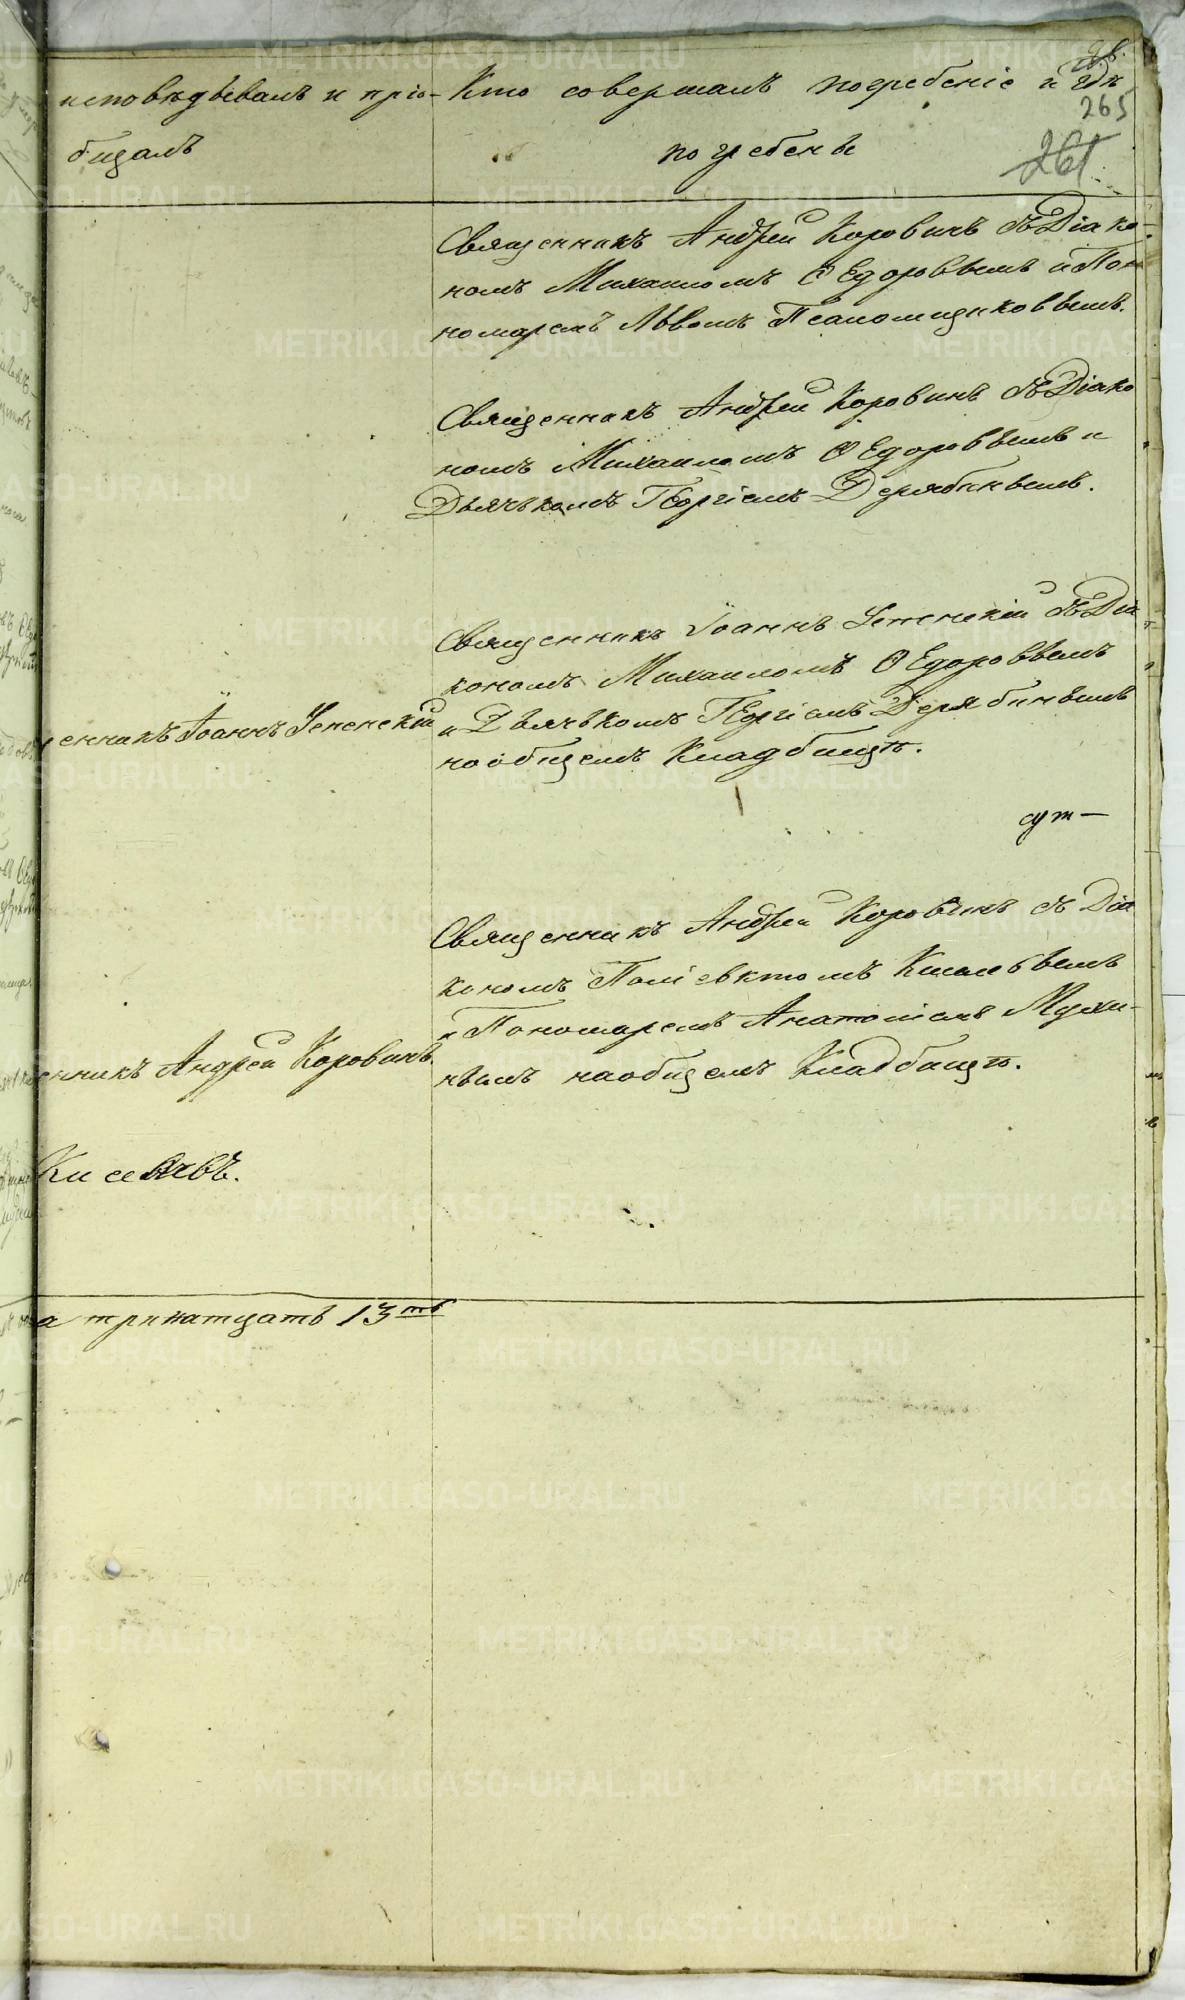 исповѣдывалъ и прiо-
бщалъ
Кто совершалъ погребенiе и гдѣ
погребены
265
261
Священникъ Андрей Коровинъ съ Дiако-
номъ Михаиломъ Ѳедоровымъ и По-
номаремъ Львомъ Псаломщиковымъ.
Священникъ Андрей Коровинъ съ Дiако
номъ Михаиломъ Ѳедоровымъ и
Дьячькомъ Георгiемъ Дерябинымъ.
Священникъ Iоаннъ Успенскiй съ Дiа
кономъ Михаиломъ Ѳедоровымъ
и Дьячькомъ Георгiемъ Дерябинымъ
на общемъ Кладбищѣ.
енникъ Iоаннъ Успенскiй
сут—
Священникъ Андрей Коровинъ съ Дiа
кономъ Полiевктомъ Киселевымъ
и Пономаремъ Анатолiемъ Мухи-
нымъ на общемъ Кладбищѣ.
енникъ Андрей Коровинъ
Киселевъ.
а тринатцать 13ть
METRIKI.GASO-URAL.RU